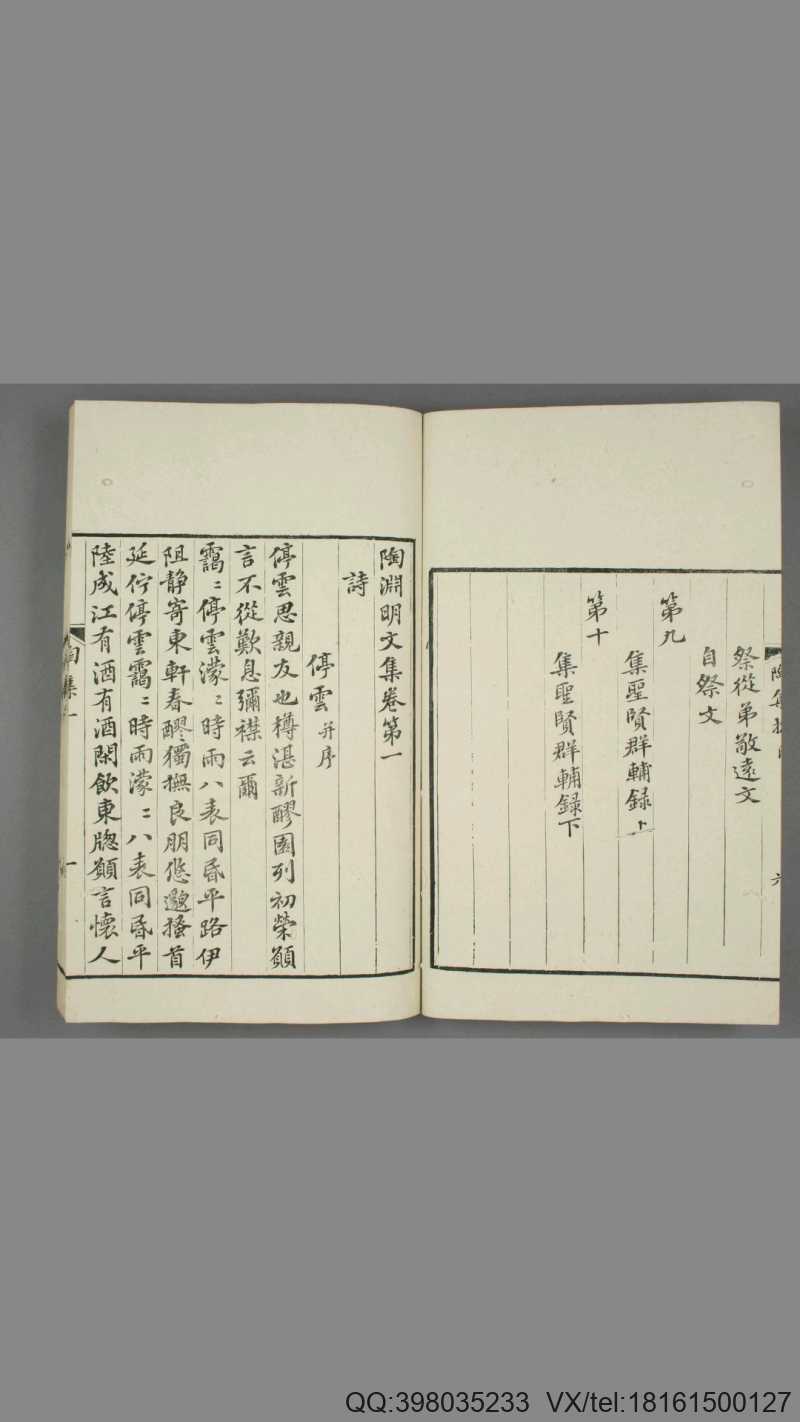 祭從弟敬遠文
自祭文
第九
集聖賢群輔録上
第十
集聖賢群輔録下
六
陶淵明文集卷第一
詩
停雲并序
停雲思親友也樽湛新醪園列初榮願
言不從歎息彌襟云爾
靄〻停雲濛〻時雨八表同昬平路伊
阻静寄東軒春醪獨撫良朋悠邈搔首
延佇停雲靄〻時雨濛〻八表同昬平
陸成江有酒有酒閑飲東牎願言懷人
陶集一
一
QQ:398035233 VX/tel:18161500127